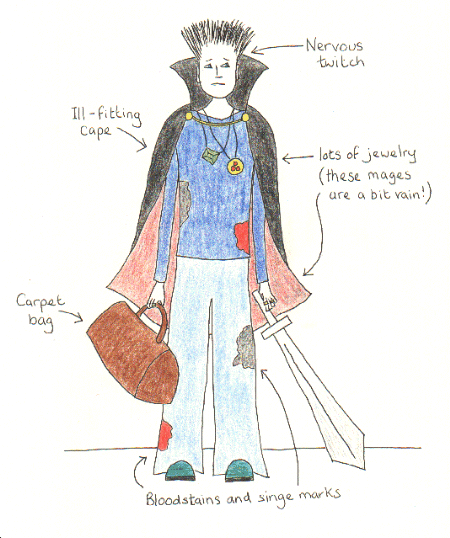 Nervous
twitch
Ill-fitting
cape
lots of jewelry
(these mages
are a bit vain!)
Carpet
bag
Bloodstains and singe marks